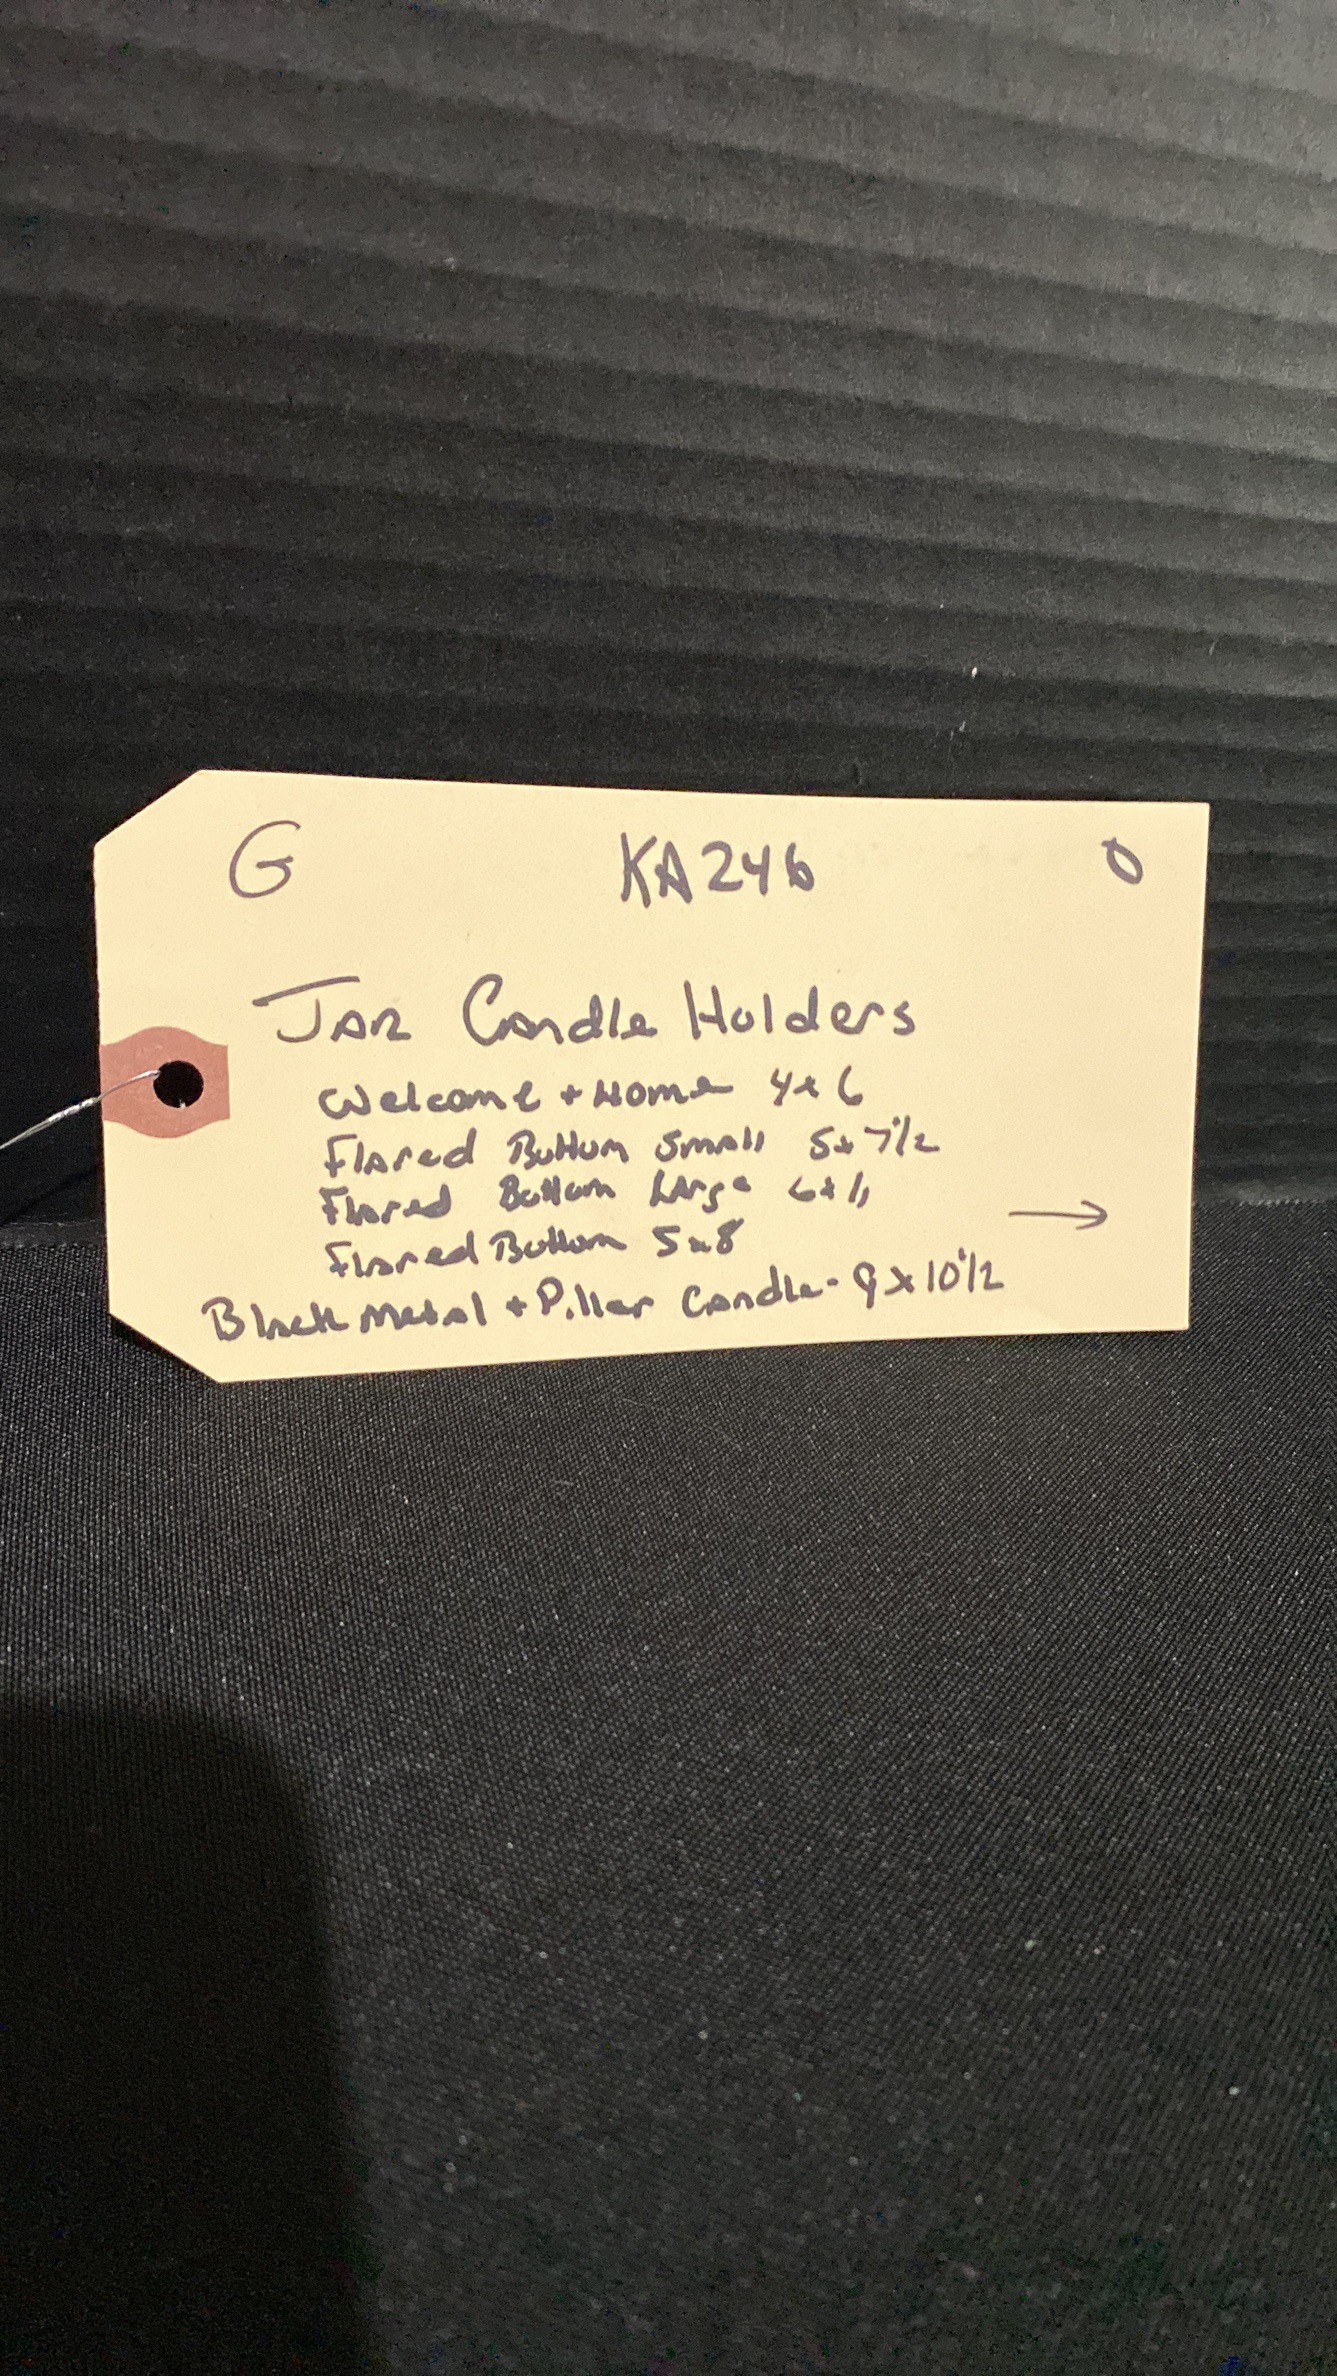 G KA246 0
Jar Candle Holders
Welcome + Home 4x6
Flared Bottom Small 5x7 1/2
Flared Bottom Large 6x11
Flared Bottom 5x8
→
Black Metal + Piller Candle - 9x10 1/2